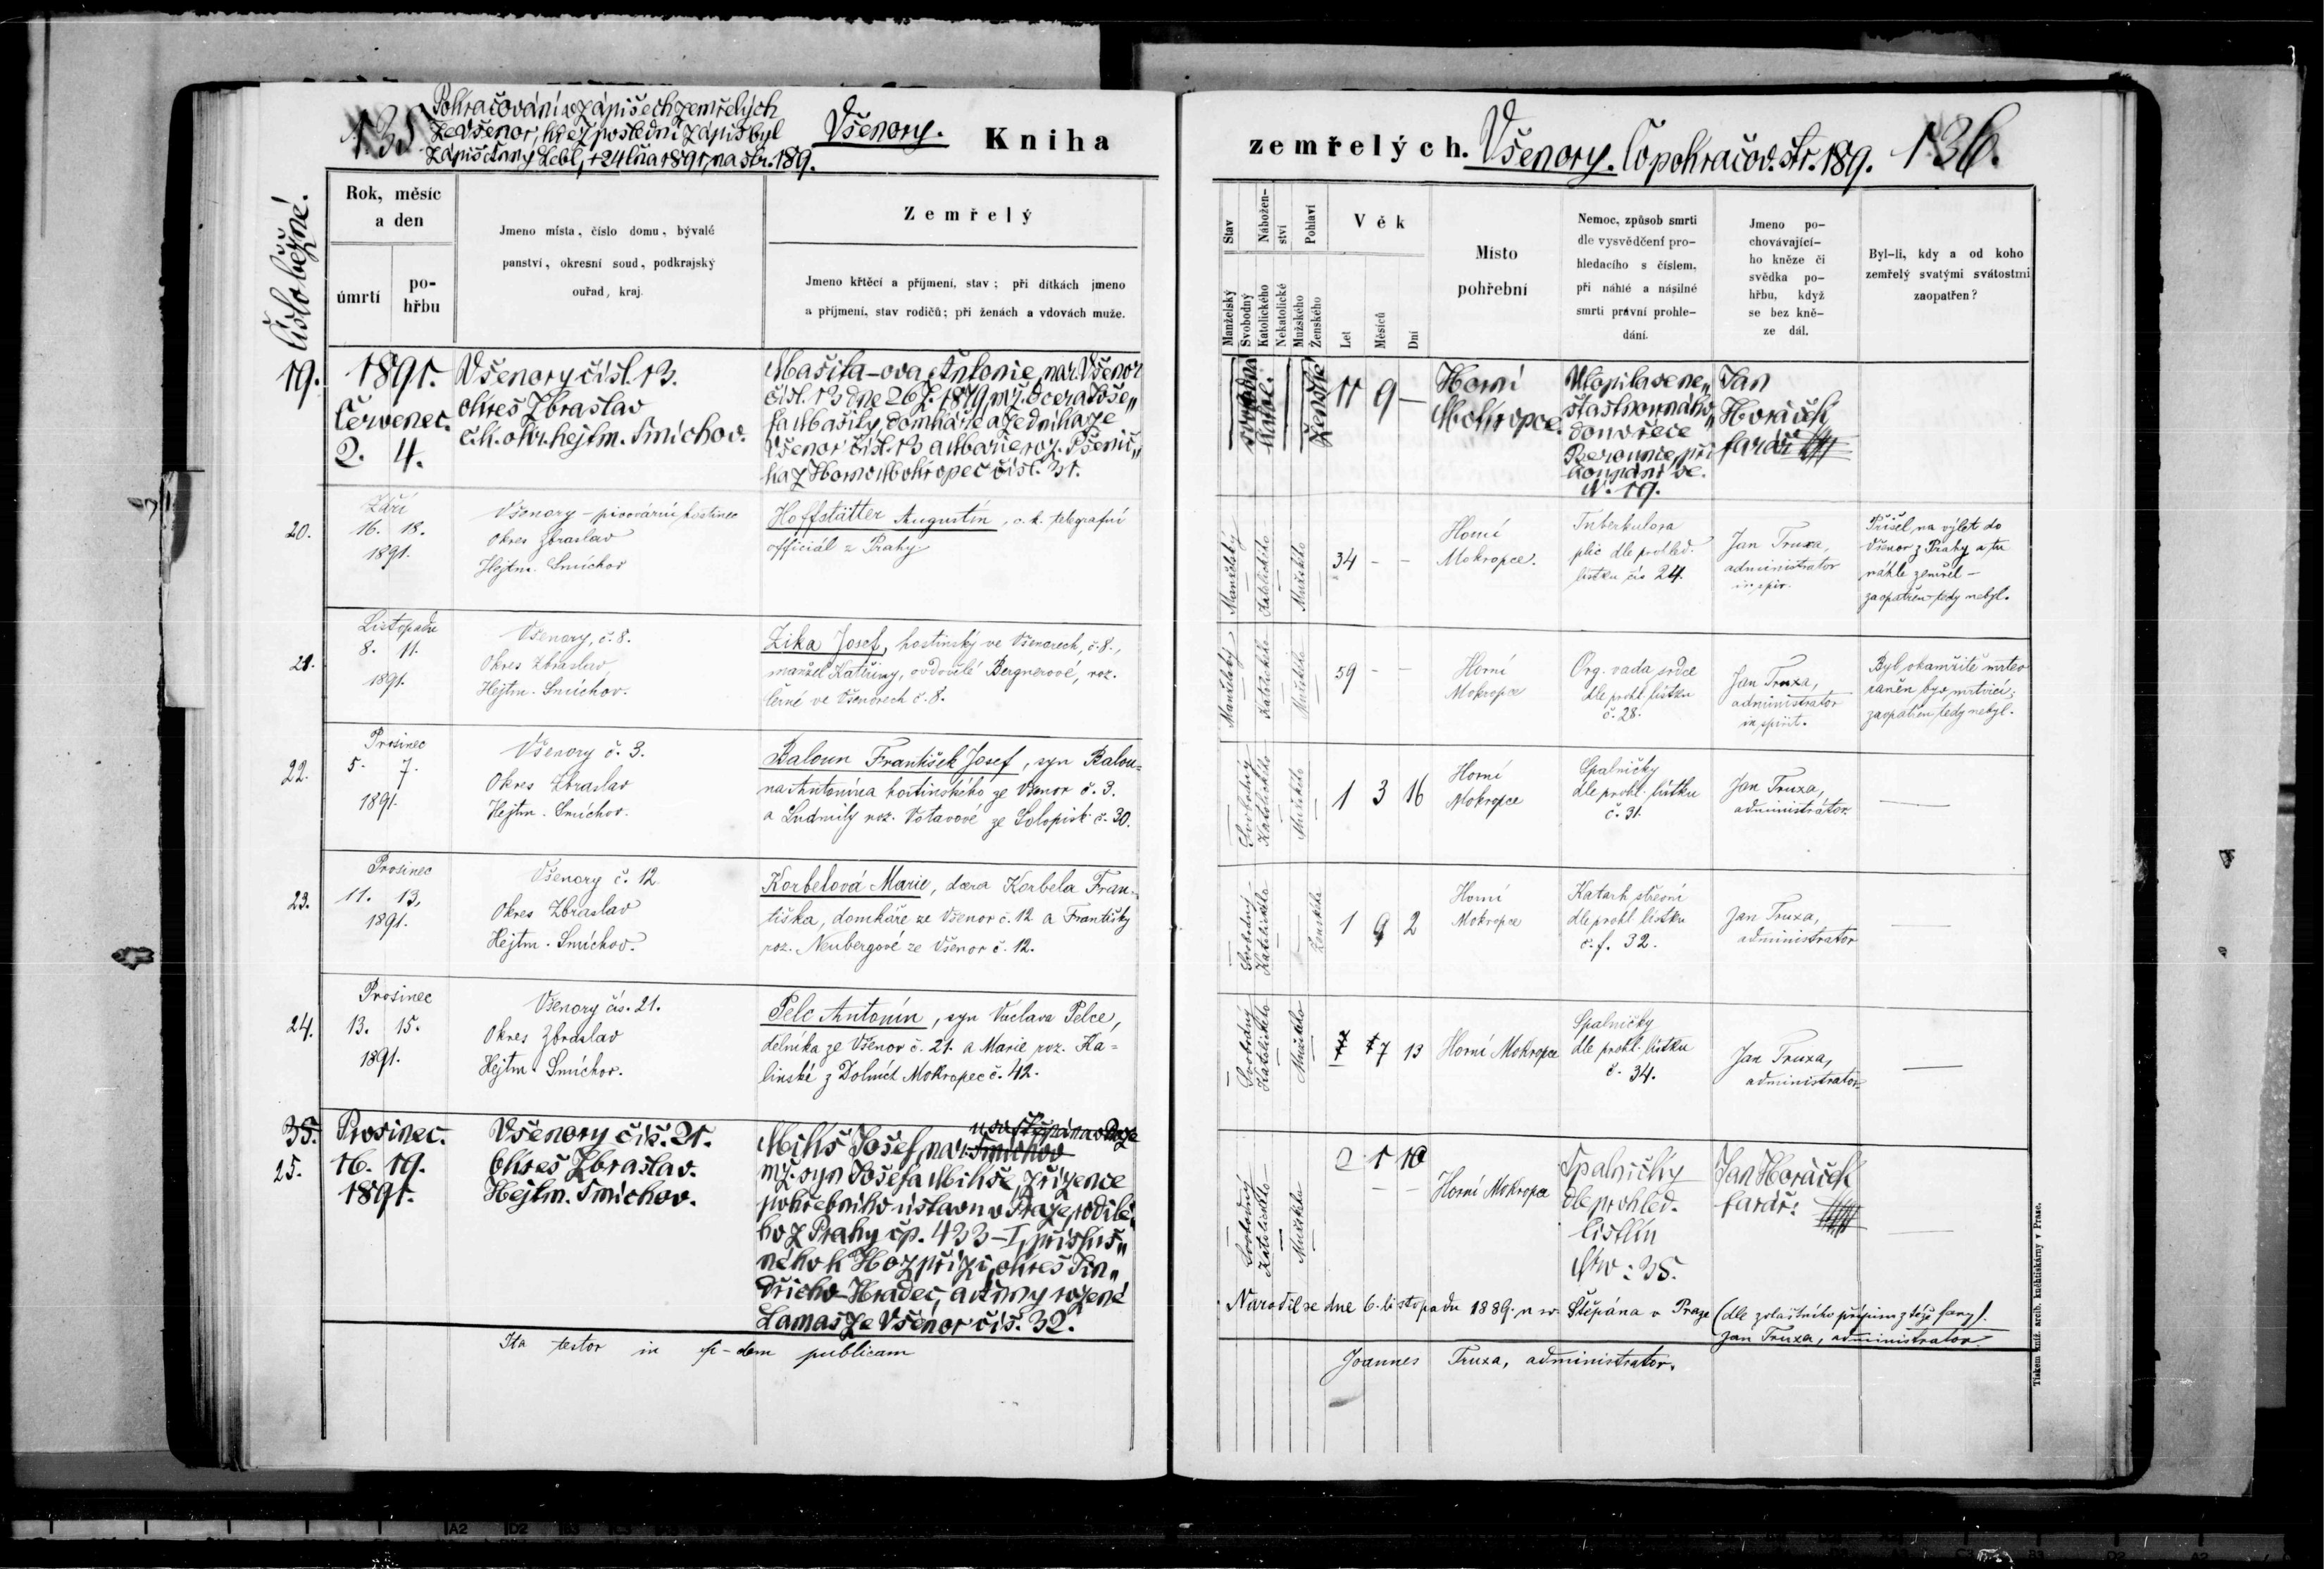 135
Pokračování v zápisech zemřelých
ze Všenor, když poslední zápis byl
zápis Anny Lebl, +24 1891, na str. 189.
Všenory. Kniha
Číslo běžné.
Rok, měsíc
a den
úmrtí
po-
hřbu
Jmeno místa, číslo domu, bývalé
panství, okresní soud, podkrajský
ouřad, kraj.
Zemřelý
Jmeno křtěcí a příjmení, stav; při dítkách jmeno
a příjmení, stav rodičů; při ženách a vdovách muže.
19.
1891.
Červenec.
2. 4.
Všenory čísl. 13.
okres Zbraslav
c.k. okr. hejtm. Smíchov.
Mašita-ova Antonie, nar. Všenor
čísl. 13 dne 26 1879 mž. dcera Jose„
fa Mašity, domkáře a zedníka ze
Všenor čísl. 13 a Marie roz. Pšenič„
ka z Horno Mokropec čísl. 31.
20.
Září
16. 18.
1891.
Všenory – pivovární hostinec
Okres Zbraslav
Hejtm. Smíchov
Hoffstätter Augustin, c. k. telegrafní
officiál z Prahy
21.
Listopadu
8. 11.
1891.
Všenory, č. 8.
Okres Zbraslav
Hejtm. Smíchov.
Zika Josef, hostinský ve Všenorech, č. 8.,
manžel Kateřiny, ovdovělé Bergnerové, roz.
ve Všenorech č. 8.
22.
Prosinec
5. 7.
1891.
Všenory č. 3.
Okres Zbraslav
Hejtm. Smíchov.
Baloun František Josef, syn Balou=
na Antonína hostinského ze Všenor č. 3.
a Ludmily roz. Votavové ze Solopisk č. 30.
23.
Prosinec
11. 13.
1891.
Všenory č. 12
Okres Zbraslav
Hejtm. Smíchov.
Korbelová Marie, dcera Korbela Fran-
tiška, domkáře ze Všenor č. 12 a Františky
roz. Neubergové ze Všenor č. 12.
24.
Prosinec
13. 15.
1891.
Všenory čís. 21.
Okres Zbraslav
Hejtm. Smíchov.
Pelc Antonín, syn Václava Pelce,
dělníka ze Všenor č. 21. a Marie roz. Ka=
linské z Dolních Mokropec č. 42.
35.
25.
Prosinec.
16. 19.
1891.
Všenory čís. 21.
Okres Zbraslav.
Hejtm. Smíchov.
u sv. Štěpána v Praze
Mikš Josef, nar. Smíchov
mž. syn Josefa Mikše, zřízence
pohřebního ústavu v Praze, rodilé„
ho z Prahy čp. 433–I, přísluš„
ného k Hozpřízi, okres Jin„
dřicho-Hradec, a Anny rozené
Lamas ze Všenor čís. 32.
Ita testor in fi-dem publicam
zemřelých. Všenory. Co pokračov. str. 189. 136.
Stav
Nábožen-
ství
Pohlaví
Věk
Manželský
Svobodný
Katolického
Nekatolické
Mužského
Ženského
Let
Měsíců
Dní
Místo
pohřební
Nemoc, způsob smrti
dle vysvědčení pro-
hledacího s číslem,
při náhlé a násilné
smrti právní prohle-
dání.
Jmeno po-
chovávající-
ho kněze či
svědka po-
hřbu, když
se bez kně-
ze dál.
Byl-li, kdy a od koho
zemřelý svatými svátostmi
zaopatřen?
svobodna
Katol.
Ženské
11 9 –
Horní
Mokropce.
Utopila se ne„
šťastnou náho„
dou v řece
Berounce při
koupání se.
N. 19.
Jan
Horáček
farář
Manželský
Katolického
Mužského
34 – –
Horní
Mokropce.
Tuberkulosa
plic dle prohled.
lístku čís 24.
Jan Truxa,
administrator
in spir.
Přišel na výlet do
Všenor z Prahy a tu
náhle zemřel –
zaopatřen tedy nebyl.
Manželský
Katolického
Mužského
59 – –
Horní
Mokropce
Org. vada srdce
dle prohl. lístku
č. 28.
Jan Truxa,
administrator
in spirit.
Byl okamžitě mrtev
raněn byv mrtvicí;
zaopatřen tedy nebyl.
Svobodný
Katolického
Mužského
1 3 16
Horní
Mokropce
Spalničky
dle prohl. lístku
č. 31.
Jan Truxa,
administrátor.
Svobodný
Katolického
Ženského
1 9 2
Horní
Mokropce
Katarh střevní
dle prohl. lístku
č. f. 32.
Jan Truxa,
administrator
Svobodný
Katolického
Mužského
7 13
Horní Mokropce
Spalničky
dle prohl. lístku
č. 34.
Jan Truxa,
administrator.
Svobodný
Katolického
Mužského
2 1 10
Horní Mokropce
Spalničky
dle prohled.
lístku
Nro: 35.
Jan Horáček
farář.
Narodil se dne 6. listopadu 1889. u sv. Štěpána v Praze (dle zvláštního přípisu z téže fary).
Jan Truxa, administrator.
Joannes Truxa, administrator.
Tiskem kníž. arcib. knihtiskárny v Praze.